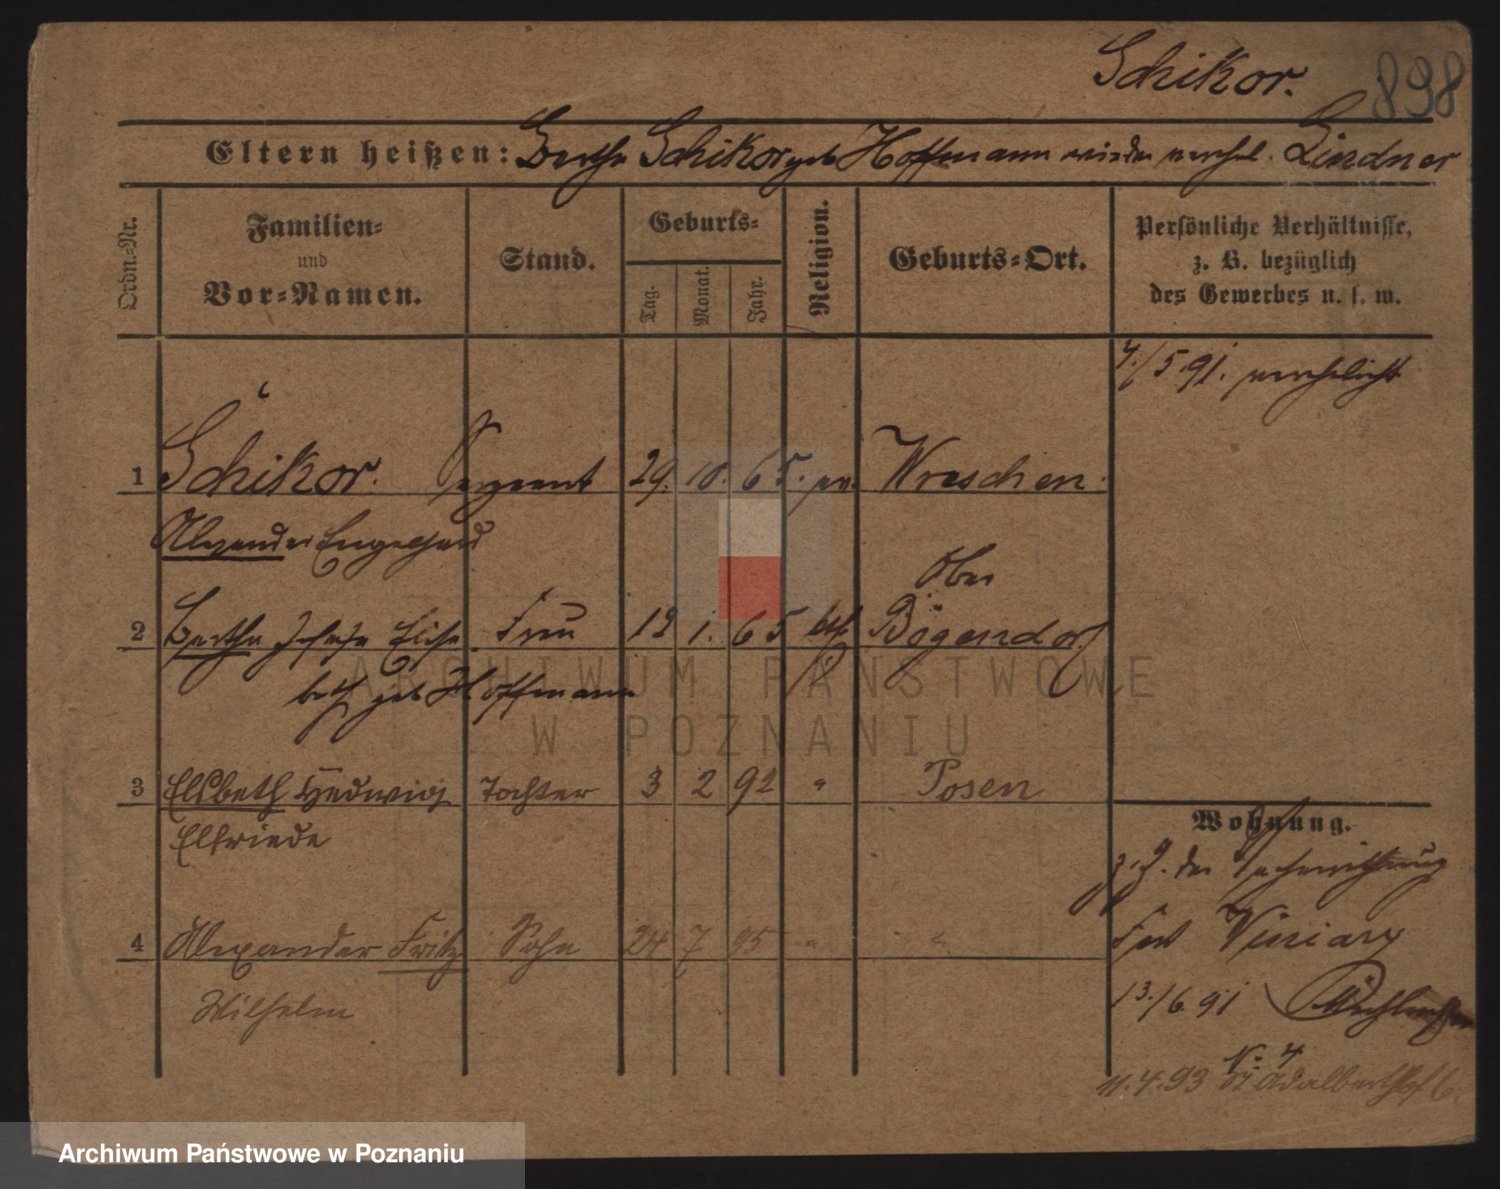 Schikor.
898
Eltern heißen: Berthe Schikor geb Hoffmann wieder verehel. Lindner
Ordn.=Nr.
Familien=
und
Vor=Namen.
Stand.
Geburts=
Tag.
Monat.
Jahr.
Religion.
Geburts=Ort.
Persönliche Verhältnisse,
z. B. bezüglich
des Gewerbes u. s. w.
4./5.91. verehelicht
1 Schikor. Sergeant 29. 10. 65. ev. Wreschen.
Alexander Engelhard
Ober
2 Bertha Josefa Elisa Frau 12 1. 65 kth. Bögendorf
beth geb Hoffmann
3 Elsbeth Hedwig Tochter 3 2 92 " Posen
Elfriede
4 Alexander Fritz Sohn 24 7 95 " "
Wilhelm
Wohnung.
z. Z. der
Fort Winiary
13./6.91 Mühlenstr
No 4
11.4.93 St Adalbertstr 6.
ARCHIWUM PAŃSTWOWE
W POZNANIU
Archiwum Państwowe w Poznaniu